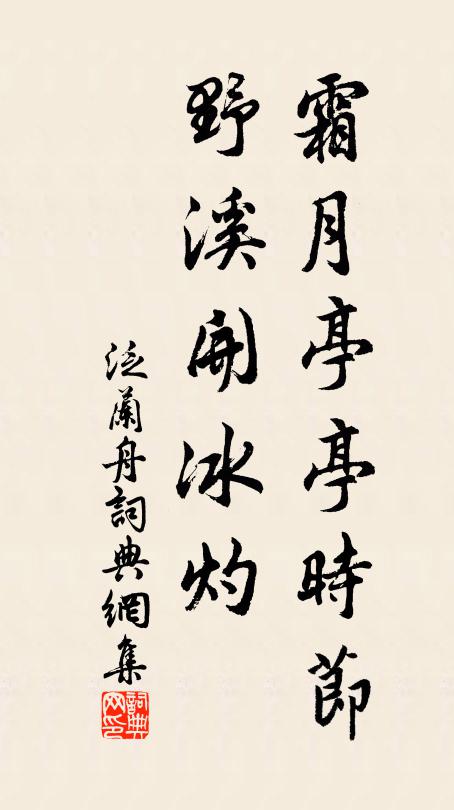 霜月亭亭時節
野溪開冰灼
泛蘭舟詞典網集
詞典网印